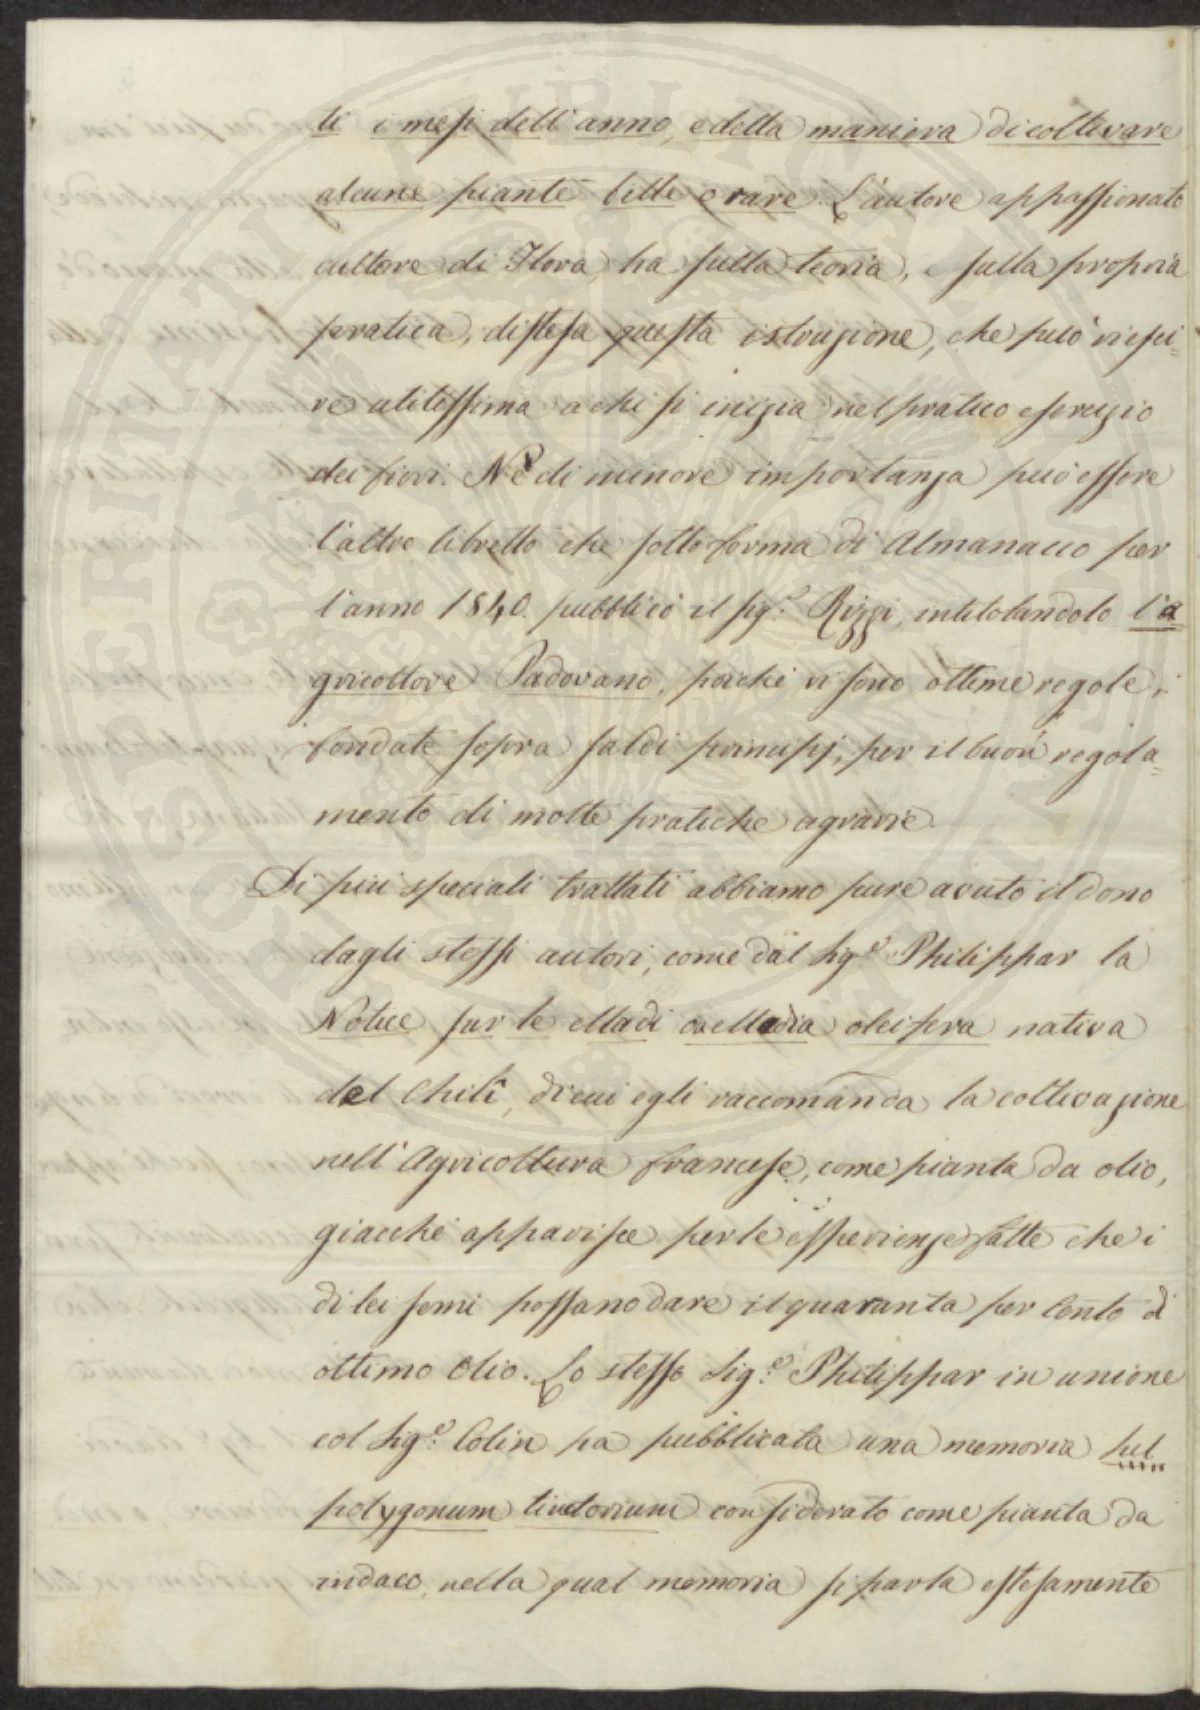 ti i mesi dell'anno, e della maniera di coltivare
alcune piante belle e rare. L'autore appassionato
cultore di Flora, ha sulla teoria, e sulla propria
pratica, distesa questa istruzione, che può riesci=
re utilissima a chi si inizia nel pratico esercizio
dei fiori. Nè di minore importanza può essere
l'altro libretto che sotto forma di Almanacco per
l'anno 1840. pubblicò il sig.e Rizzi, intitolandolo l'a
gricoltore Padovano, poichè vi sono ottime regole,
fondate sopra saldi principj, per il buon regola=
mento di molte pratiche agrarie.
Di più speciali trattati abbiamo pure avuto il dono
dagli stessi autori, come dal Sig.e Philippar la
Notice sur le Madi o Madia oleifera nativa
del Chilì, di cui egli raccomanda la coltivazione
nell'Agricoltura francese, come pianta da olio,
giacchè apparisce per le esperienze fatte che i
di lei semi possano dare il quaranta per Cento di
ottimo Olio. Lo stesso Sig.e Philippar in unione
col Sig.e Colin ha pubblicata una memoria sul
polygonum tinctorium considerato come pianta da
indaco, nella qual memoria si parla estesamente